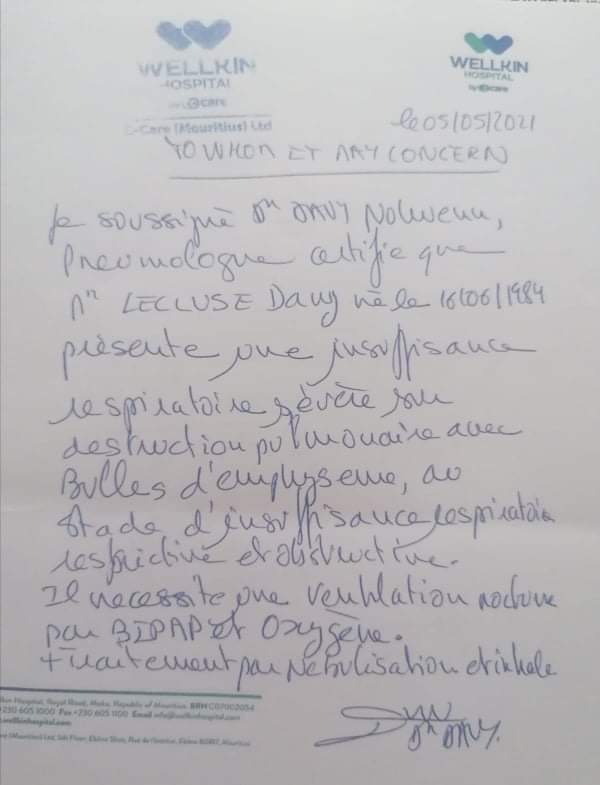 WELLKIN
HOSPITAL
by C care
C-Care (Mauritius) Ltd
WELLKIN
HOSPITAL
by C care
le 05/05/2021
TO WHOM ET MAY CONCERN
Je soussigné Dr DAVY Nolwenn,
Pneumologue certifie que
Mr LECLUSE Davy né le 16/06/1984
présente une insuffisance
respiratoire sévère sur
destruction pulmonaire avec
Bulles d'emphyseme, au
stade d'insuffisance respiratoire
restrictive et obstructive.
Il necessite une ventilation nocturne
par BIPAP et Oxygène.
+ Traitement par Nébulisation et inhalé
Hospital, Royal Road, Moka, Republic of Mauritius. BRN C07002054
+230 605 1000 Fax +230 605 1100 Email info@wellkinhospital.com
wellkinhospital.com
(Mauritius) Ltd, 5th Floor, Ebène Skies, Rue de l'Institut, Ebène 80817, Mauritius
Dr DAVY.